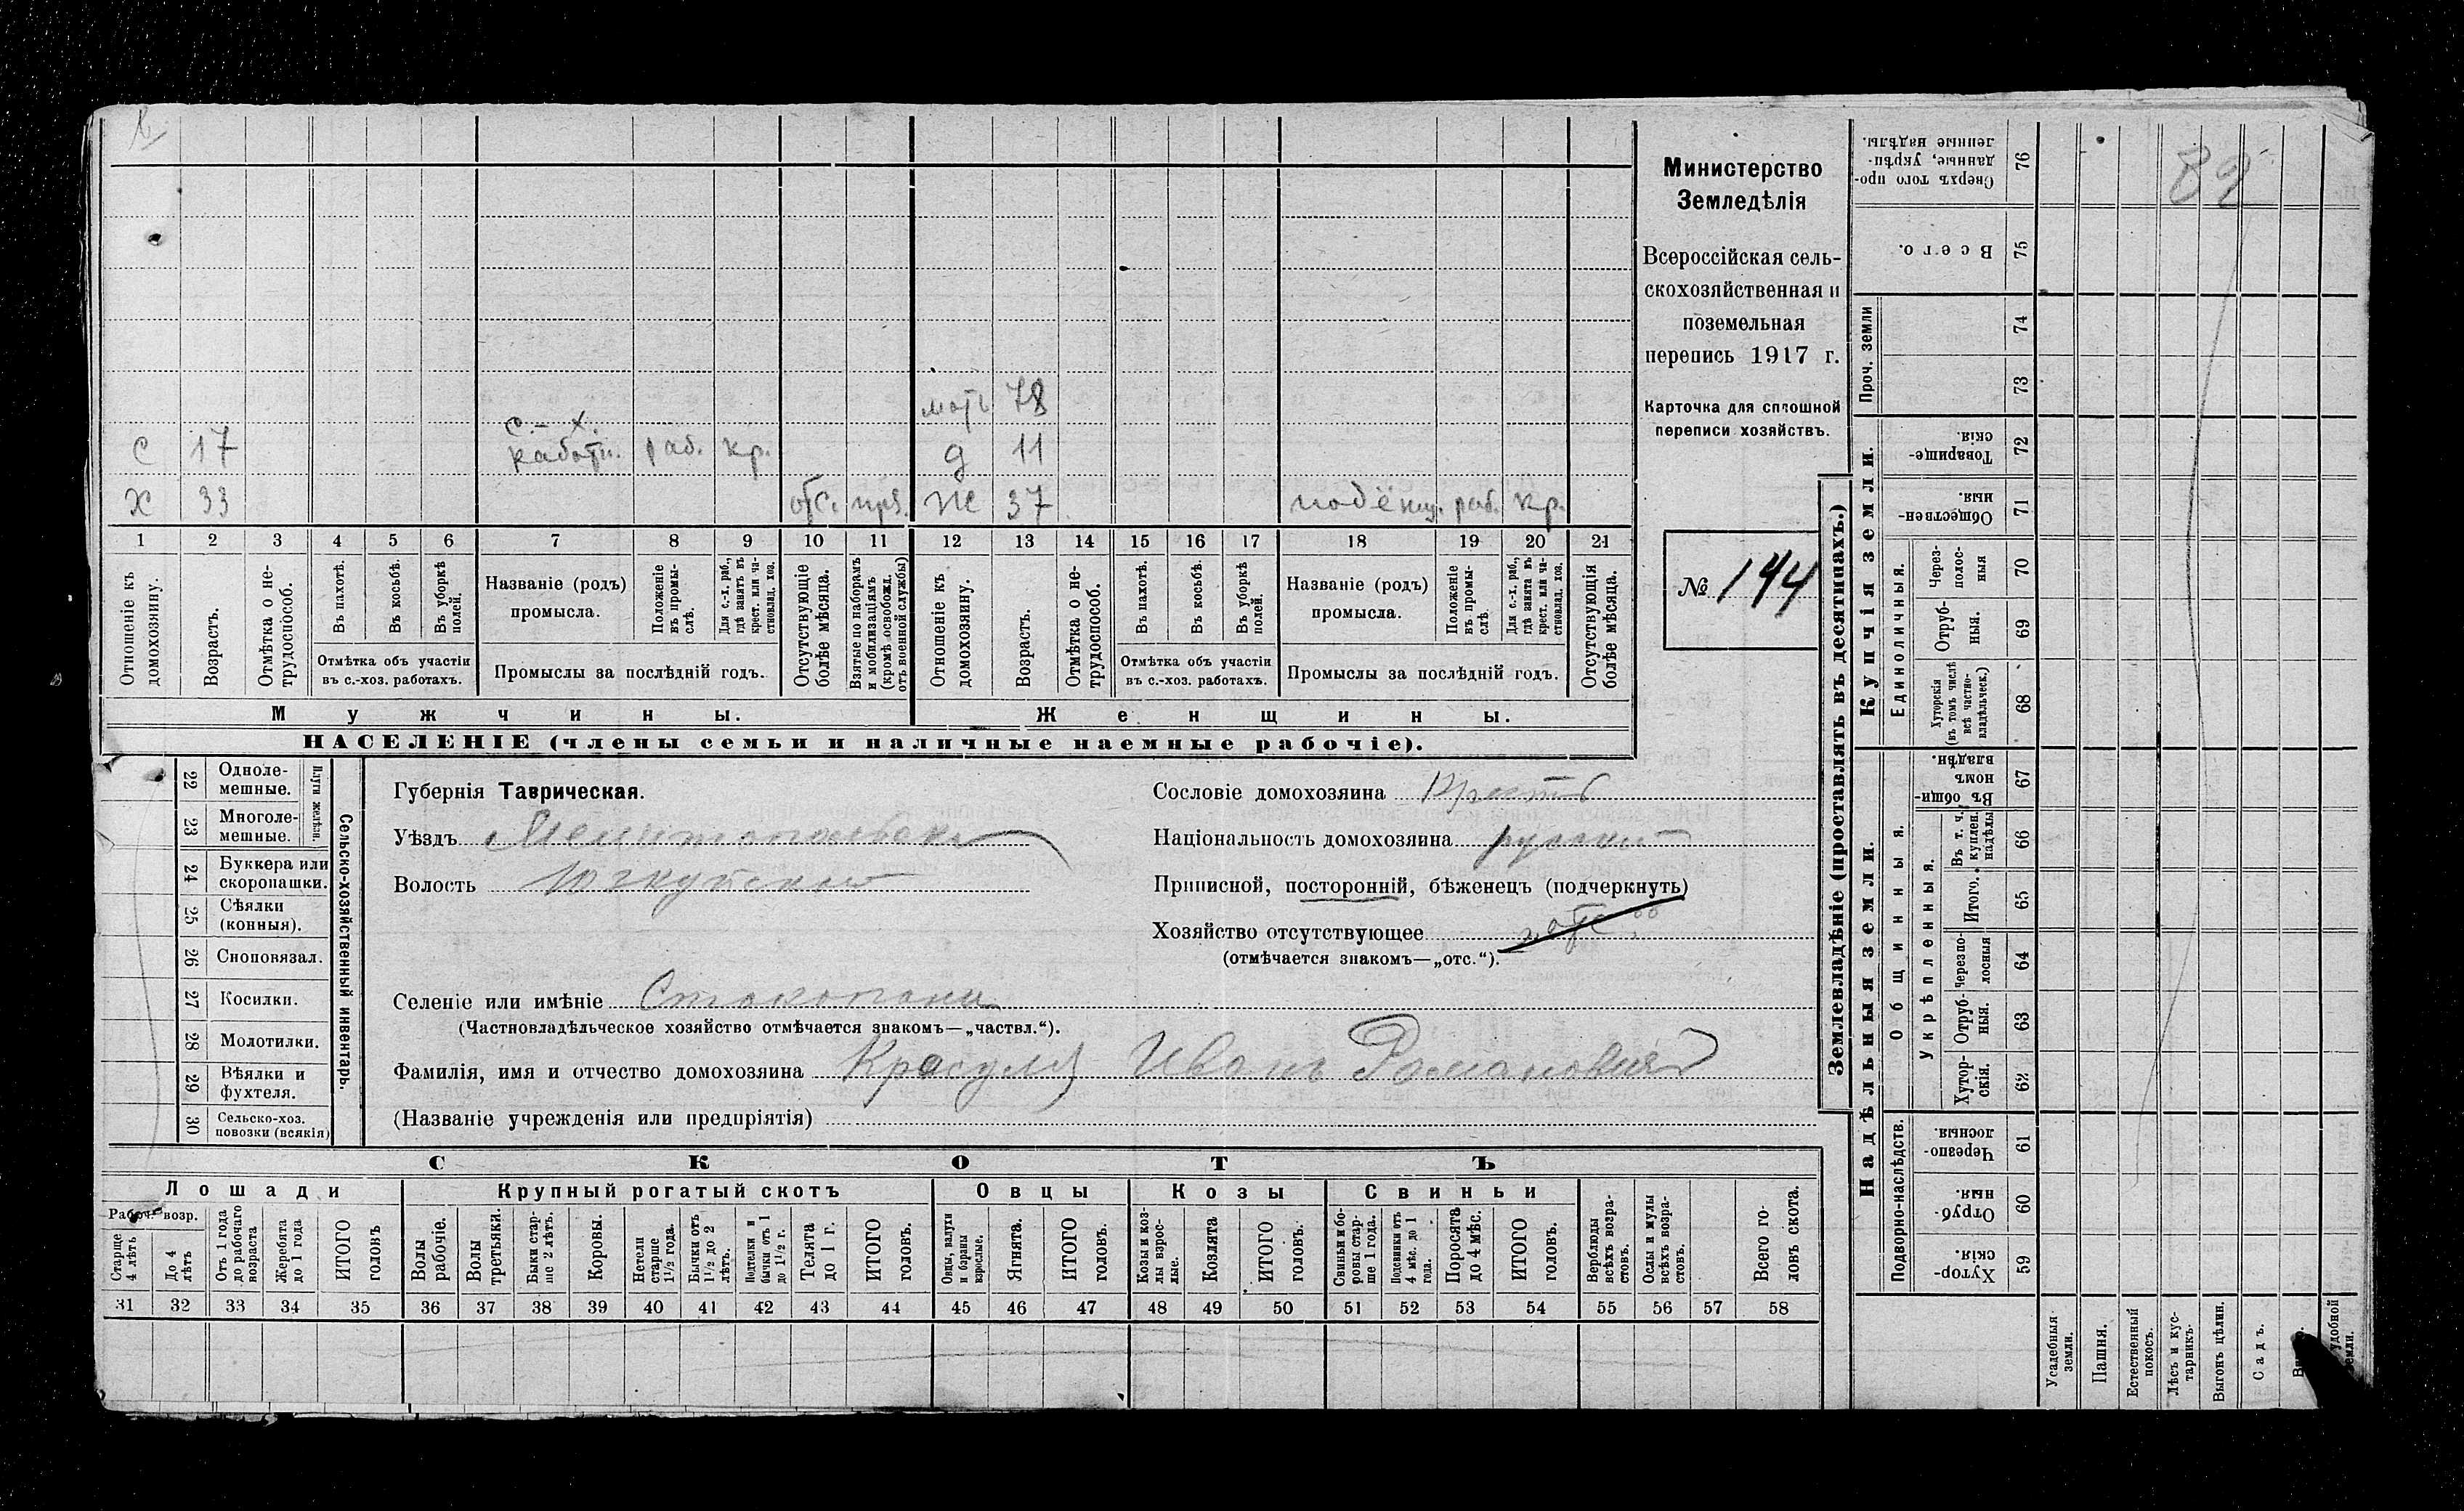 89
Министерство
Земледѣлія
Всероссійская сель-
скохозяйственная и
поземельная
перепись 1917 г.
Карточка для сплошной
переписи хозяйствъ.
№ 144
мать 78
С 17 с.-х. работн. раб. кр. д 11
Х 33 отс. прз. ж 37 подёнщ. раб. кр.
1 2 3 4 5 6 7 8 9 10 11 12 13 14 15 16 17 18 19 20 21
Отношеніе къ домохозяину.
Возрастъ.
Отмѣтка о не-трудоспособ.
Въ пахотѣ.
Въ косьбѣ.
Въ уборкѣ полей.
Отмѣтка объ участіи
въ с.-хоз. работахъ.
Названіе (родъ)
промысла.
Положеніе въ промы-слѣ.
Для с.-х. раб., гдѣ занятъ въ крест. или ча-стновлад. хоз.
Промыслы за послѣдній годъ.
Отсутствующіе болѣе мѣсяца.
Взятые по наборамъ и мобилизаціямъ (кромѣ освобожд. отъ военной службы)
Отношеніе къ домохозяину.
Возрастъ.
Отмѣтка о не-трудоспособ.
Въ пахотѣ.
Въ косьбѣ.
Въ уборкѣ полей.
Отмѣтка объ участіи
въ с.-хоз. работахъ.
Названіе (родъ)
промысла.
Положеніе въ промы-слѣ.
Для с.-х. раб., гдѣ занята въ крест. или ча-стновлад. хоз.
Промыслы за послѣдній годъ.
Отсутствующія болѣе мѣсяца.
Мужчины.
Женщины.
НАСЕЛЕНІЕ (члены семьи и наличные наемные рабочіе).
Сельско-хозяйственный инвентарь.
Плуги желѣзн.
22 Одноле-мешные.
23 Многоле-мешные.
24 Буккера или скоропашки.
25 Сѣялки (конныя).
26 Сноповязал.
27 Косилки.
28 Молотилки.
29 Вѣялки и фухтеля.
30 Сельско-хоз. повозки (всякія)
Губернія Таврическая.
Уѣздъ Мелитопольскій
Волость Юзкуйской
Селеніе или имѣніе Стокопани
(Частновладѣльческое хозяйство отмѣчается знакомъ—„частвл.“).
Фамилія, имя и отчество домохозяина Красуля Иванъ Романовичъ
(Названіе учрежденія или предпріятія)
Сословіе домохозяина Крест.
Національность домохозяина русскій
Приписной, посторонній, бѣженецъ (подчеркнуть)
Хозяйство отсутствующее отс.
(отмѣчается знакомъ—„отс.“).
СКОТЪ
Лошади
Крупный рогатый скотъ
Овцы
Козы
Свиньи
Рабоч. возр.
Старше 4 лѣтъ
До 4 лѣтъ
Отъ 1 года до рабочаго возраста
Жеребята до 1 года
ИТОГО головъ
Волы рабочіе.
Волы третьяки.
Быки стар-ше 2 лѣтъ.
Коровы.
Нетели старше 1½ года.
Бычки отъ 1½ до 2 лѣтъ.
Подтелки и бычки отъ 1 до 1½ г.
Телята до 1 г.
ИТОГО головъ.
Овцы, валухи и бараны взрослые.
Ягнята.
ИТОГО головъ.
Козы и коз-лы взрос-лые.
Козлята
ИТОГО головъ.
Свиньи и бо-ровы стар-ше 1 года.
Подсвинки отъ 4 мѣс. до 1 года.
Поросята до 4 мѣс.
ИТОГО головъ.
Верблюды всѣхъ возра-стовъ.
Ослы и мулы всѣхъ возра-стовъ.
Всего го-ловъ скота.
31 32 33 34 35 36 37 38 39 40 41 42 43 44 45 46 47 48 49 50 51 52 53 54 55 56 57 58
Землевладѣніе (проставлять въ десятинахъ.)
Надѣльныя земли.
Купчія земли.
Проч. земли
Подворно-наслѣдств.
Общинныя.
Укрѣпленныя.
Единоличныя.
76 Сверхъ того про-данные, укрѣп-ленные надѣлы.
75 Всего.
74
73
72 Товарище-скія.
71 Обществен-ныя.
70 Через-полос-ныя
69 Отруб-ныя.
68 Хуторскія (въ томъ числѣ всѣ частно-владѣльческ.)
67 Въ общин-номъ владѣн.
66 Въ т. ч. куплен. надѣлы
65 Итого.
64 Черезпо-лосныя
63 Отруб-ныя.
62 Хутор-скія.
61 Черезпо-лосныя.
60 Отруб-ныя.
59 Хутор-скія.
Усадебныя земли.
Пашня.
Естественный покосъ.
Лѣсъ и кус-тарникъ.
Выгонъ цѣлин.
Садъ.
удобной земли.